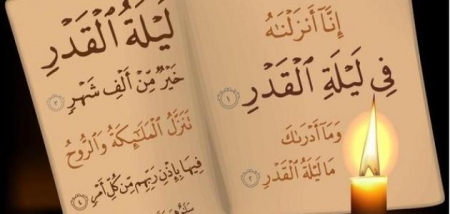 إِنَّآ أَنزَلْنَٰهُ
فِي لَيْلَةِ ٱلْقَدْرِ ١
وَمَآ أَدْرَىٰكَ
مَا لَيْلَةُ ٱلْقَدْرِ ٢
لَيْلَةُ ٱلْقَدْرِ
خَيْرٌ مِّنْ أَلْفِ شَهْرٍ ٣
تَنَزَّلُ ٱلْمَلَٰٓئِكَةُ وَٱلرُّوحُ
فِيهَا بِإِذْنِ رَبِّهِم مِّن كُلِّ أَمْرٍ ٤